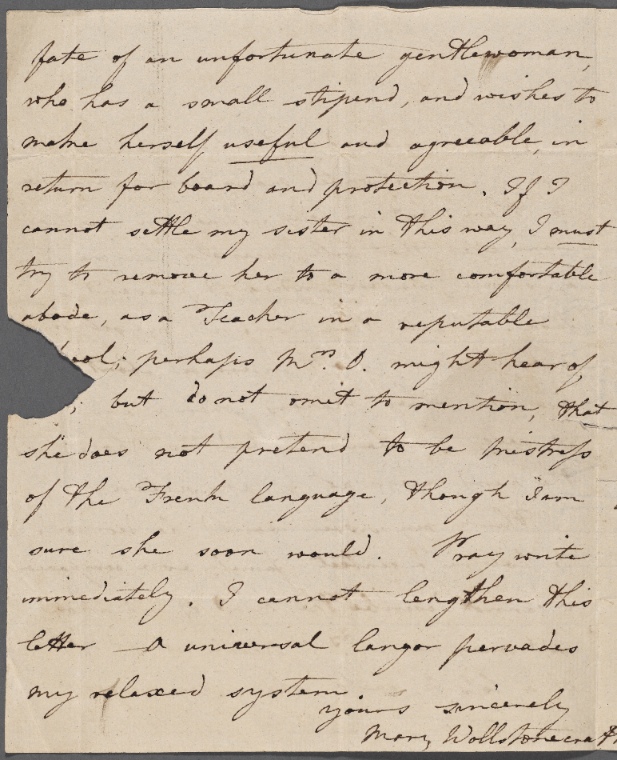 fate of an unfortunate gentlewoman,
who has a small stipend, and wishes to
make herself useful and agreeable, in
return for board and protection. If I
cannot settle my sister in this way, I must
try to remove her to a more comfortable
abode, as a Teacher in a reputable
ool; perhaps Mrs. O. might hear of
; but do not omit to mention, that
she does not pretend to be mistress
of the French language, though I am
sure she soon would. Pray write
immediately. I cannot lengthen this
letter – a universal langor pervades
my relaxed system
yours sincerely
Mary Wollstonecraft